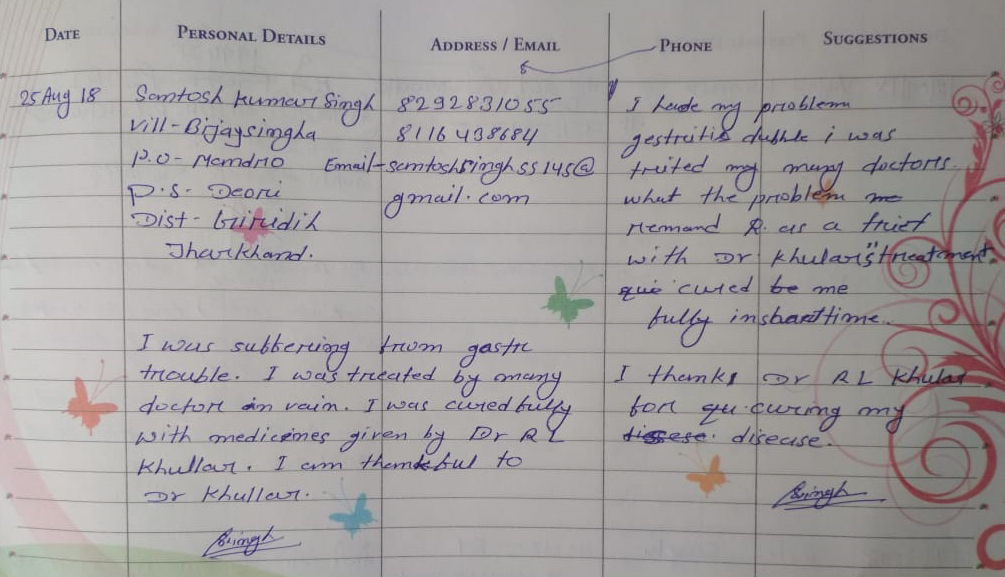 DATE
PERSONAL DETAILS
ADDRESS / EMAIL
PHONE
SUGGESTIONS
25 Aug 18
Santosh Kumar Singh
Vill - Bijaysingha
P.O - Mandro
P.S - Deori
Dist - Giridih
Jharkhand.
8292831055
8116438684
Email - santoshsingh.ss145@
gmail.com
I hade my problem
gestritis i was
trited my many doctors
what the problem me
R. as a trict
with Dr. Khular's treatment
cured be me
fully in short time.
I was suffering from gastric
trouble. I was treated by many
doctor in vain. I was cured fully
with medicines given by Dr RL
Khullar. I am thankful to
Dr Khullar.
Singh
I thanks Dr RL Khular
for qu curing my
disese. disease.
Singh